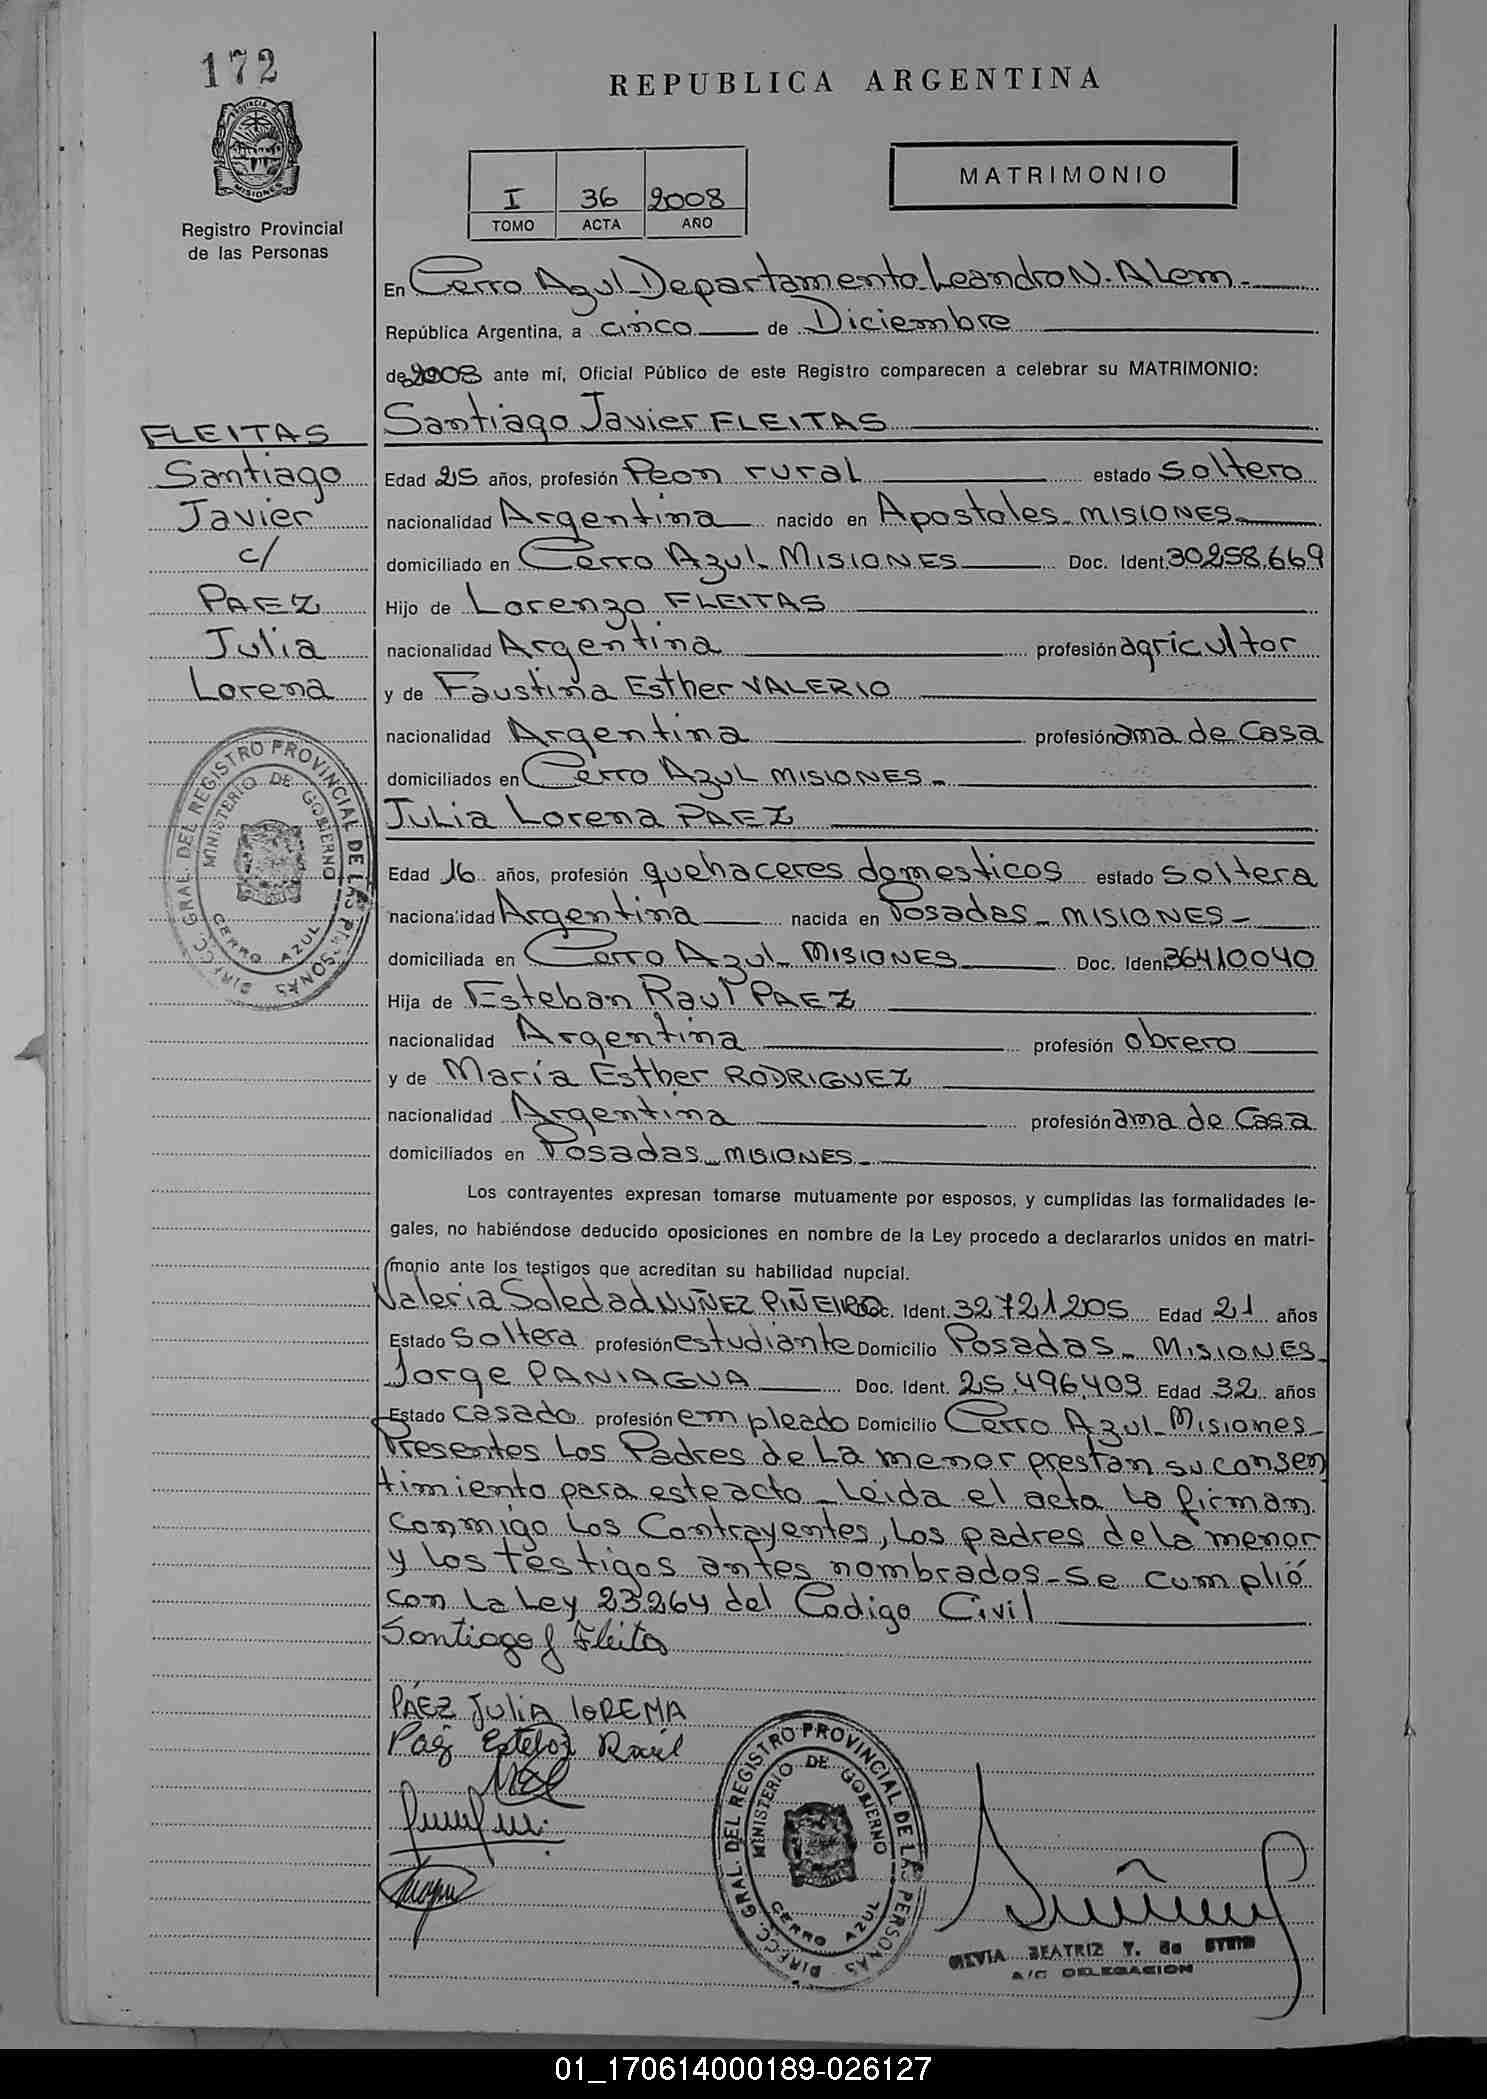 172
REPUBLICA ARGENTINA
PROVINCIA DE
MISIONES
Registro Provincial
de las Personas
I 36 2008
TOMO ACTA AÑO
MATRIMONIO
En Cerro Azul-Departamento-Leandro N. Alem-
República Argentina, a cinco de Diciembre
de 2008 ante mí, Oficial Público de este Registro comparecen a celebrar su MATRIMONIO:
Santiago Javier FLEITAS
FLEITAS
Santiago
Javier
c/
PAEZ
Julia
Lorena
Edad 25 años, profesión Peon rural estado soltero
nacionalidad Argentina nacido en Apostoles-MISIONES-
domiciliado en Cerro Azul-MISIONES Doc. Ident. 30258.669
Hijo de Lorenzo FLEITAS
nacionalidad Argentina profesión agricultor
y de Faustina Esther VALERIO
nacionalidad Argentina profesión ama de Casa
domiciliados en Cerro Azul MISIONES-
Julia Lorena PAEZ
Edad 16 años, profesión quehaceres domesticos estado soltera
nacionalidad Argentina nacida en Posadas-MISIONES-
domiciliada en Cerro Azul-MISIONES Doc. Ident 36410040
Hija de Esteban Raul PAEZ
nacionalidad Argentina profesión obrero
y de María Esther RODRIGUEZ
nacionalidad Argentina profesión ama de Casa
domiciliados en Posadas-MISIONES-
Los contrayentes expresan tomarse mutuamente por esposos, y cumplidas las formalidades le-
gales, no habiéndose deducido oposiciones en nombre de la Ley procedo a declararlos unidos en matri-
monio ante los testigos que acreditan su habilidad nupcial.
Valeria Soledad NUÑEZ PIÑEIRO Doc. Ident. 32721205 Edad 21 años
Estado soltera profesión estudiante Domicilio Posadas-MISIONES-
Jorge PANIAGUA Doc. Ident. 25.496.403 Edad 32 años
Estado casado profesión empleado Domicilio Cerro Azul-Misiones-
Presentes Los Padres de La menor prestan su consen
timiento para este acto-Leida el acta La firman
conmigo Los Contrayentes, Los padres de la menor
y Los testigos antes nombrados-Se cumplió
con La Ley 23264 del Codigo Civil
Santiago J Fleitas
PÁEZ Julia loRENA
Paez Esteban Raúl
DIRECC. GRAL. DEL REGISTRO PROVINCIAL DE LAS PERSONAS
MINISTERIO DE GOBIERNO
CERRO AZUL
DIRECC. GRAL. DEL REGISTRO PROVINCIAL DE LAS PERSONAS
MINISTERIO DE GOBIERNO
CERRO AZUL
SILVIA BEATRIZ Y. de STEIN
A/C DELEGACION
01_170614000189-026127